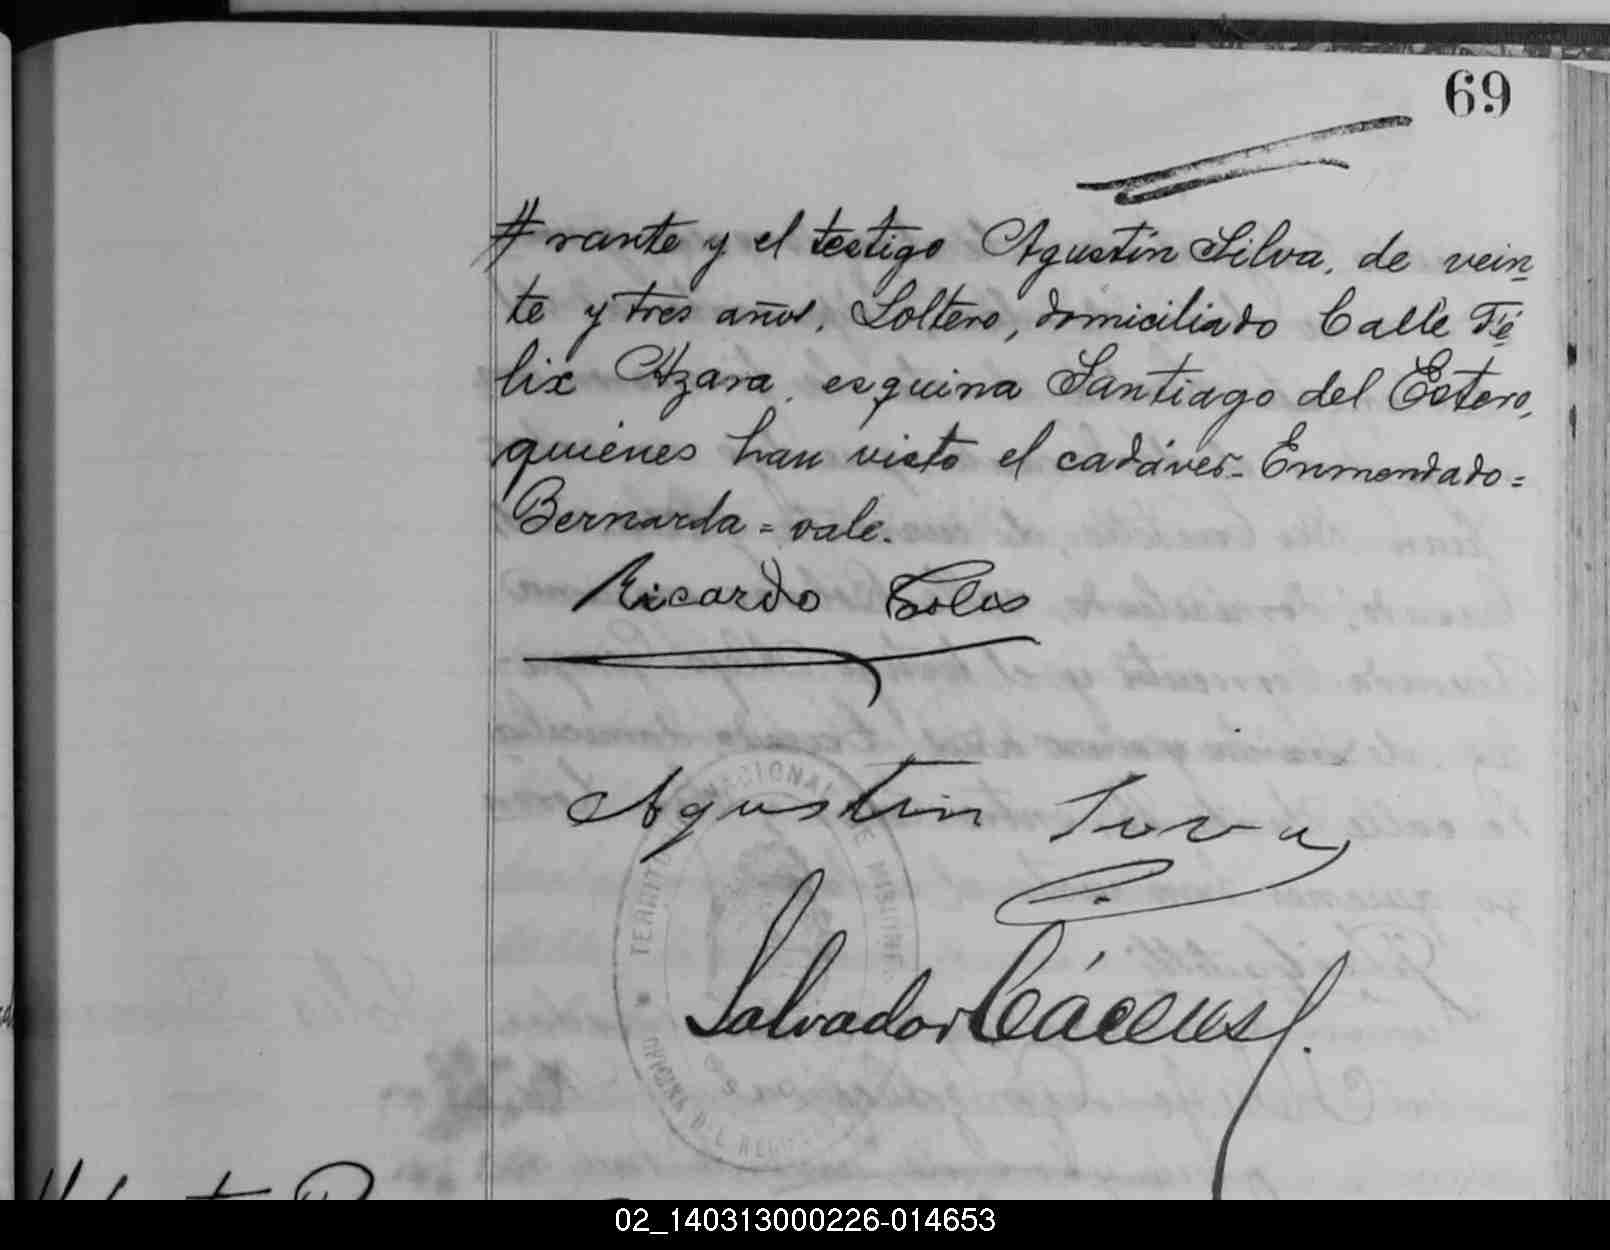 69
# rante y el testigo Agustín Silva, de vein
te y tres años, Soltero, domiciliado Calle Fé
lix Azara, esquina Santiago del Estero,
quiénes han visto el cadáver_ Enmendado=
Bernarda = vale.
Ricardo Solis
Agustin Silva
TERRITORIO NACIONAL DE MISIONES
Salvador Cáceres
02_140313000226-014653